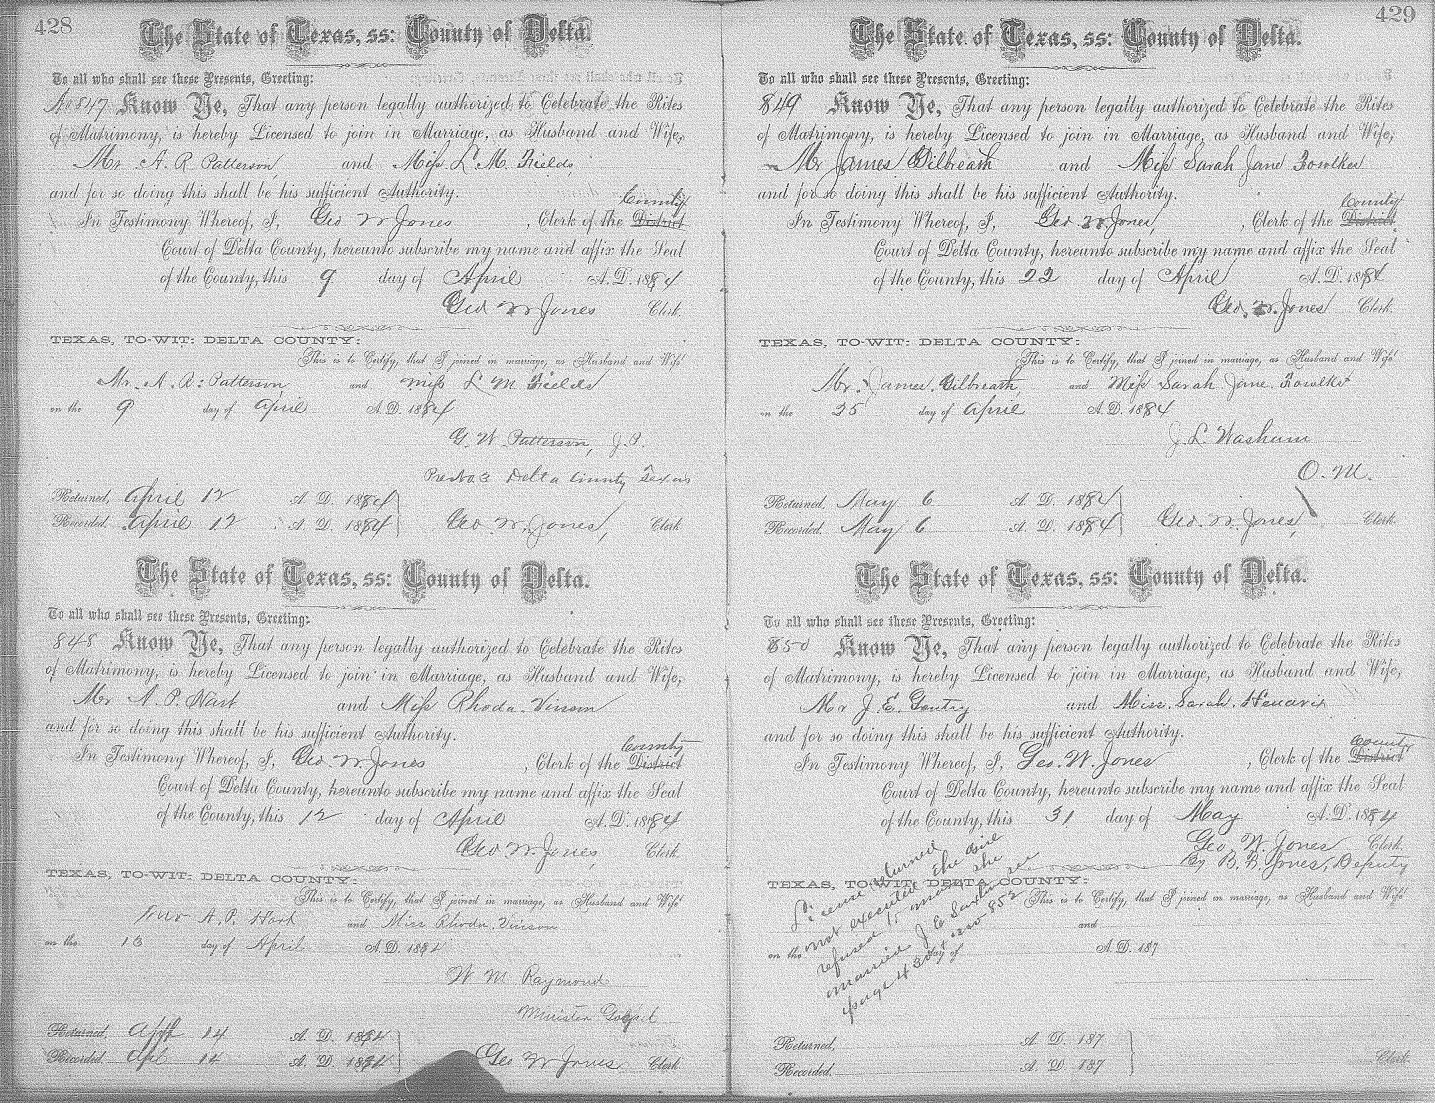 428
The State of Texas, ss: County of Delta.
To all who shall see these Presents, Greeting:
No 847 Know Ye, That any person legally authorized to Celebrate the Rites
of Matrimony, is hereby Licensed to join in Marriage, as Husband and Wife,
Mr A. R Patterson, and Miss L M Fields,
and for so doing this shall be his sufficient Authority.
County
In Testimony Whereof, I, Geo W Jones , Clerk of the District
Court of Delta County, hereunto subscribe my name and affix the Seal
of the County, this 9 day of April A. D. 1884
Geo W Jones Clerk.
TEXAS, TO-WIT: DELTA COUNTY:
This is to Certify, that I joined in marriage, as Husband and Wife
Mr. A. R. Patterson, and miss L M Fields,
on the 9 day of April A. D. 1884
G. W. Patterson, J. P.
Pre No 3 Delta County Texas
Returned, April 12 A. D. 1884
Recorded, April 12 A. D. 1884 Geo. W. Jones, Clerk
The State of Texas, ss: County of Delta.
To all who shall see these Presents, Greeting:
848 Know Ye, That any person legally authorized to Celebrate the Rites
of Matrimony, is hereby Licensed to join in Marriage, as Husband and Wife,
Mr A. P. Hart and Miss Rhoda Vinson
and for so doing this shall be his sufficient Authority.
County
In Testimony Whereof, I, Geo W. Jones , Clerk of the District
Court of Delta County, hereunto subscribe my name and affix the Seal
of the County, this 12 day of April A. D. 1884
Geo W. Jones Clerk.
TEXAS, TO-WIT: DELTA COUNTY:
This is to Certify, that I joined in marriage, as Husband and Wife
A. P. Hart and Miss Rhoda Vinson
on the 13 day of April A. D. 1884
W M Raymond
Minister Gospel
Returned, 14 A. D. 1884
Recorded, Apl 14 A. D. 1884 Geo W Jones Clerk
429
The State of Texas, ss: County of Delta.
To all who shall see these Presents, Greeting:
849 Know Ye, That any person legally authorized to Celebrate the Rites
of Matrimony, is hereby Licensed to join in Marriage, as Husband and Wife,
Mr James Gilbreath and Miss Sarah Jane Fowlker
and for so doing this shall be his sufficient Authority.
County
In Testimony Whereof, I, Geo. W Jones, , Clerk of the District
Court of Delta County, hereunto subscribe my name and affix the Seal
of the County, this 22 day of April A. D. 1884
Geo. W. Jones Clerk.
TEXAS, TO-WIT: DELTA COUNTY:
This is to Certify, that I joined in marriage, as Husband and Wife
Mr. James. Gilbreath, and Miss Sarah Jane Fowlker
on the 25 day of April A. D. 1884
J. L. Washum
O. M.
Returned, May 6 A. D. 1884
Recorded, May 6 A. D. 1884 Geo. W. Jones, Clerk.
The State of Texas, ss: County of Delta.
To all who shall see these Presents, Greeting:
850 Know Ye, That any person legally authorized to Celebrate the Rites
of Matrimony, is hereby Licensed to join in Marriage, as Husband and Wife,
Mr J. E. Gentry and Miss. Sarah. Hendrix
and for so doing this shall be his sufficient Authority.
County
In Testimony Whereof, I, Geo. W. Jones , Clerk of the District
Court of Delta County, hereunto subscribe my name and affix the Seal
of the County, this 31 day of May A. D. 1884
Geo W. Jones Clerk.
By B. B. Jones, Deputy
TEXAS, TO-WIT: DELTA COUNTY:
This is to Certify, that I joined in marriage, as Husband and Wife
and
on the day of A. D. 187
License returned
not executed the Girl
refused to marry she
married J. E. see
page 430 no 852
Returned, A. D. 187
Recorded. A. D. 187 Clerk.